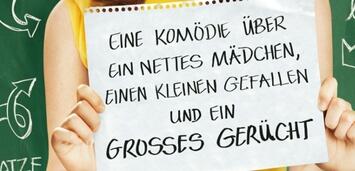 EINE KOMÖDIE ÜBER
EIN NETTES MÄDCHEN,
EINEN KLEINEN GEFALLEN
UND EIN
GROSSES GERÜCHT
ATZE